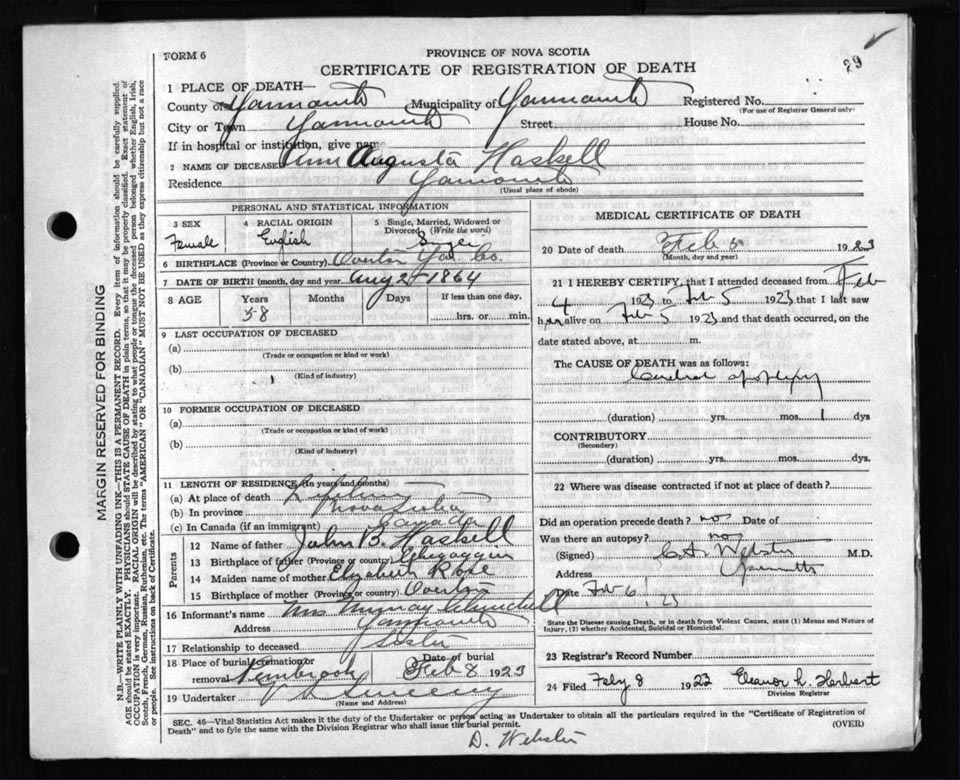 29
FORM 6
PROVINCE OF NOVA SCOTIA
CERTIFICATE OF REGISTRATION OF DEATH
1 PLACE OF DEATH—
County of Yarmouth Municipality of Yarmouth Registered No.
(For use of Registrar General only)
City or Town Yarmouth Street House No.
If in hospital or institution, give name
2 NAME OF DECEASED Ann Augusta Haskell
Residence Yarmouth
(Usual place of abode)
PERSONAL AND STATISTICAL INFORMATION
3 SEX Female
4 RACIAL ORIGIN English
5 Single, Married, Widowed or Divorced (Write the word)
6 BIRTHPLACE (Province or Country) Overton Yar Co.
7 DATE OF BIRTH (month, day and year) Aug 2 1864
8 AGE Years 58 Months Days If less than one day, hrs. or min.
9 LAST OCCUPATION OF DECEASED
(a)
(Trade or occupation or kind of work)
(b)
(Kind of industry)
10 FORMER OCCUPATION OF DECEASED
(a)
(Trade or occupation or kind of work)
(b)
(Kind of industry)
11 LENGTH OF RESIDENCE (in years and months)
(a) At place of death Lifetime
(b) In province Nova Scotia
(c) In Canada (if an immigrant) Canada
Parents
12 Name of father John B. Haskell
13 Birthplace of father (Province or country) Chegoggin
14 Maiden name of mother Elizabeth Rose
15 Birthplace of mother (Province or country) Overton
16 Informant's name Mrs Murray Churchill
Address Yarmouth
17 Relationship to deceased Sister
18 Place of burial, cremation or removal Pembrook Date of burial Feb 8 1923
19 Undertaker V S Sweeny
(Name and Address)
MEDICAL CERTIFICATE OF DEATH
20 Date of death Feb 5 1923
(Month, day and year)
21 I HEREBY CERTIFY, that I attended deceased from Feb
4 1923 to Feb 5 1923 that I last saw
her alive on Feb 5 1923 and that death occurred, on
date stated above, at m.
The CAUSE OF DEATH was as follows:
Cerebral apoplexy
(duration) yrs. mos. 1 dys
CONTRIBUTORY
(Secondary)
(duration) yrs. mos. dys.
22 Where was disease contracted if not at place of death?
Did an operation precede death? no Date of
Was there an autopsy? no
(Signed) C A Webster M.D.
Address Yarmouth
Date Feb 6 23
State the Disease causing Death, or in death from Violent Causes, state (1) Means and Nature of
Injury, (2) whether Accidental, Suicidal or Homicidal.
23 Registrar's Record Number
24 Filed Feby 8 1923 Eleanor L. Herbert
Division Registrar
SEC. 46—Vital Statistics Act makes it the duty of the Undertaker or person acting as Undertaker to obtain all the particulars required in the "Certificate of Registration of
Death" and to fyle the same with the Division Registrar who shall issue the burial permit. (OVER)
D. Webster
MARGIN RESERVED FOR BINDING
N.B.—WRITE PLAINLY WITH UNFADING INK—THIS IS A PERMANENT RECORD. Every item of information should be carefully supplied.
AGE should be stated EXACTLY. PHYSICIANS should STATE CAUSE OF DEATH in plain terms, so that it may be properly classified. Exact statement of
OCCUPATION is very important. RACIAL ORIGIN will be described by stating to what people or tongue the deceased person belonged whether English, Irish,
Scotch, French, German, Russian, Ruthenian, etc. The terms "AMERICAN" OR "CANADIAN" MUST NOT BE USED as they express citizenship but not a race
or people. See instructions on back of Certificate.